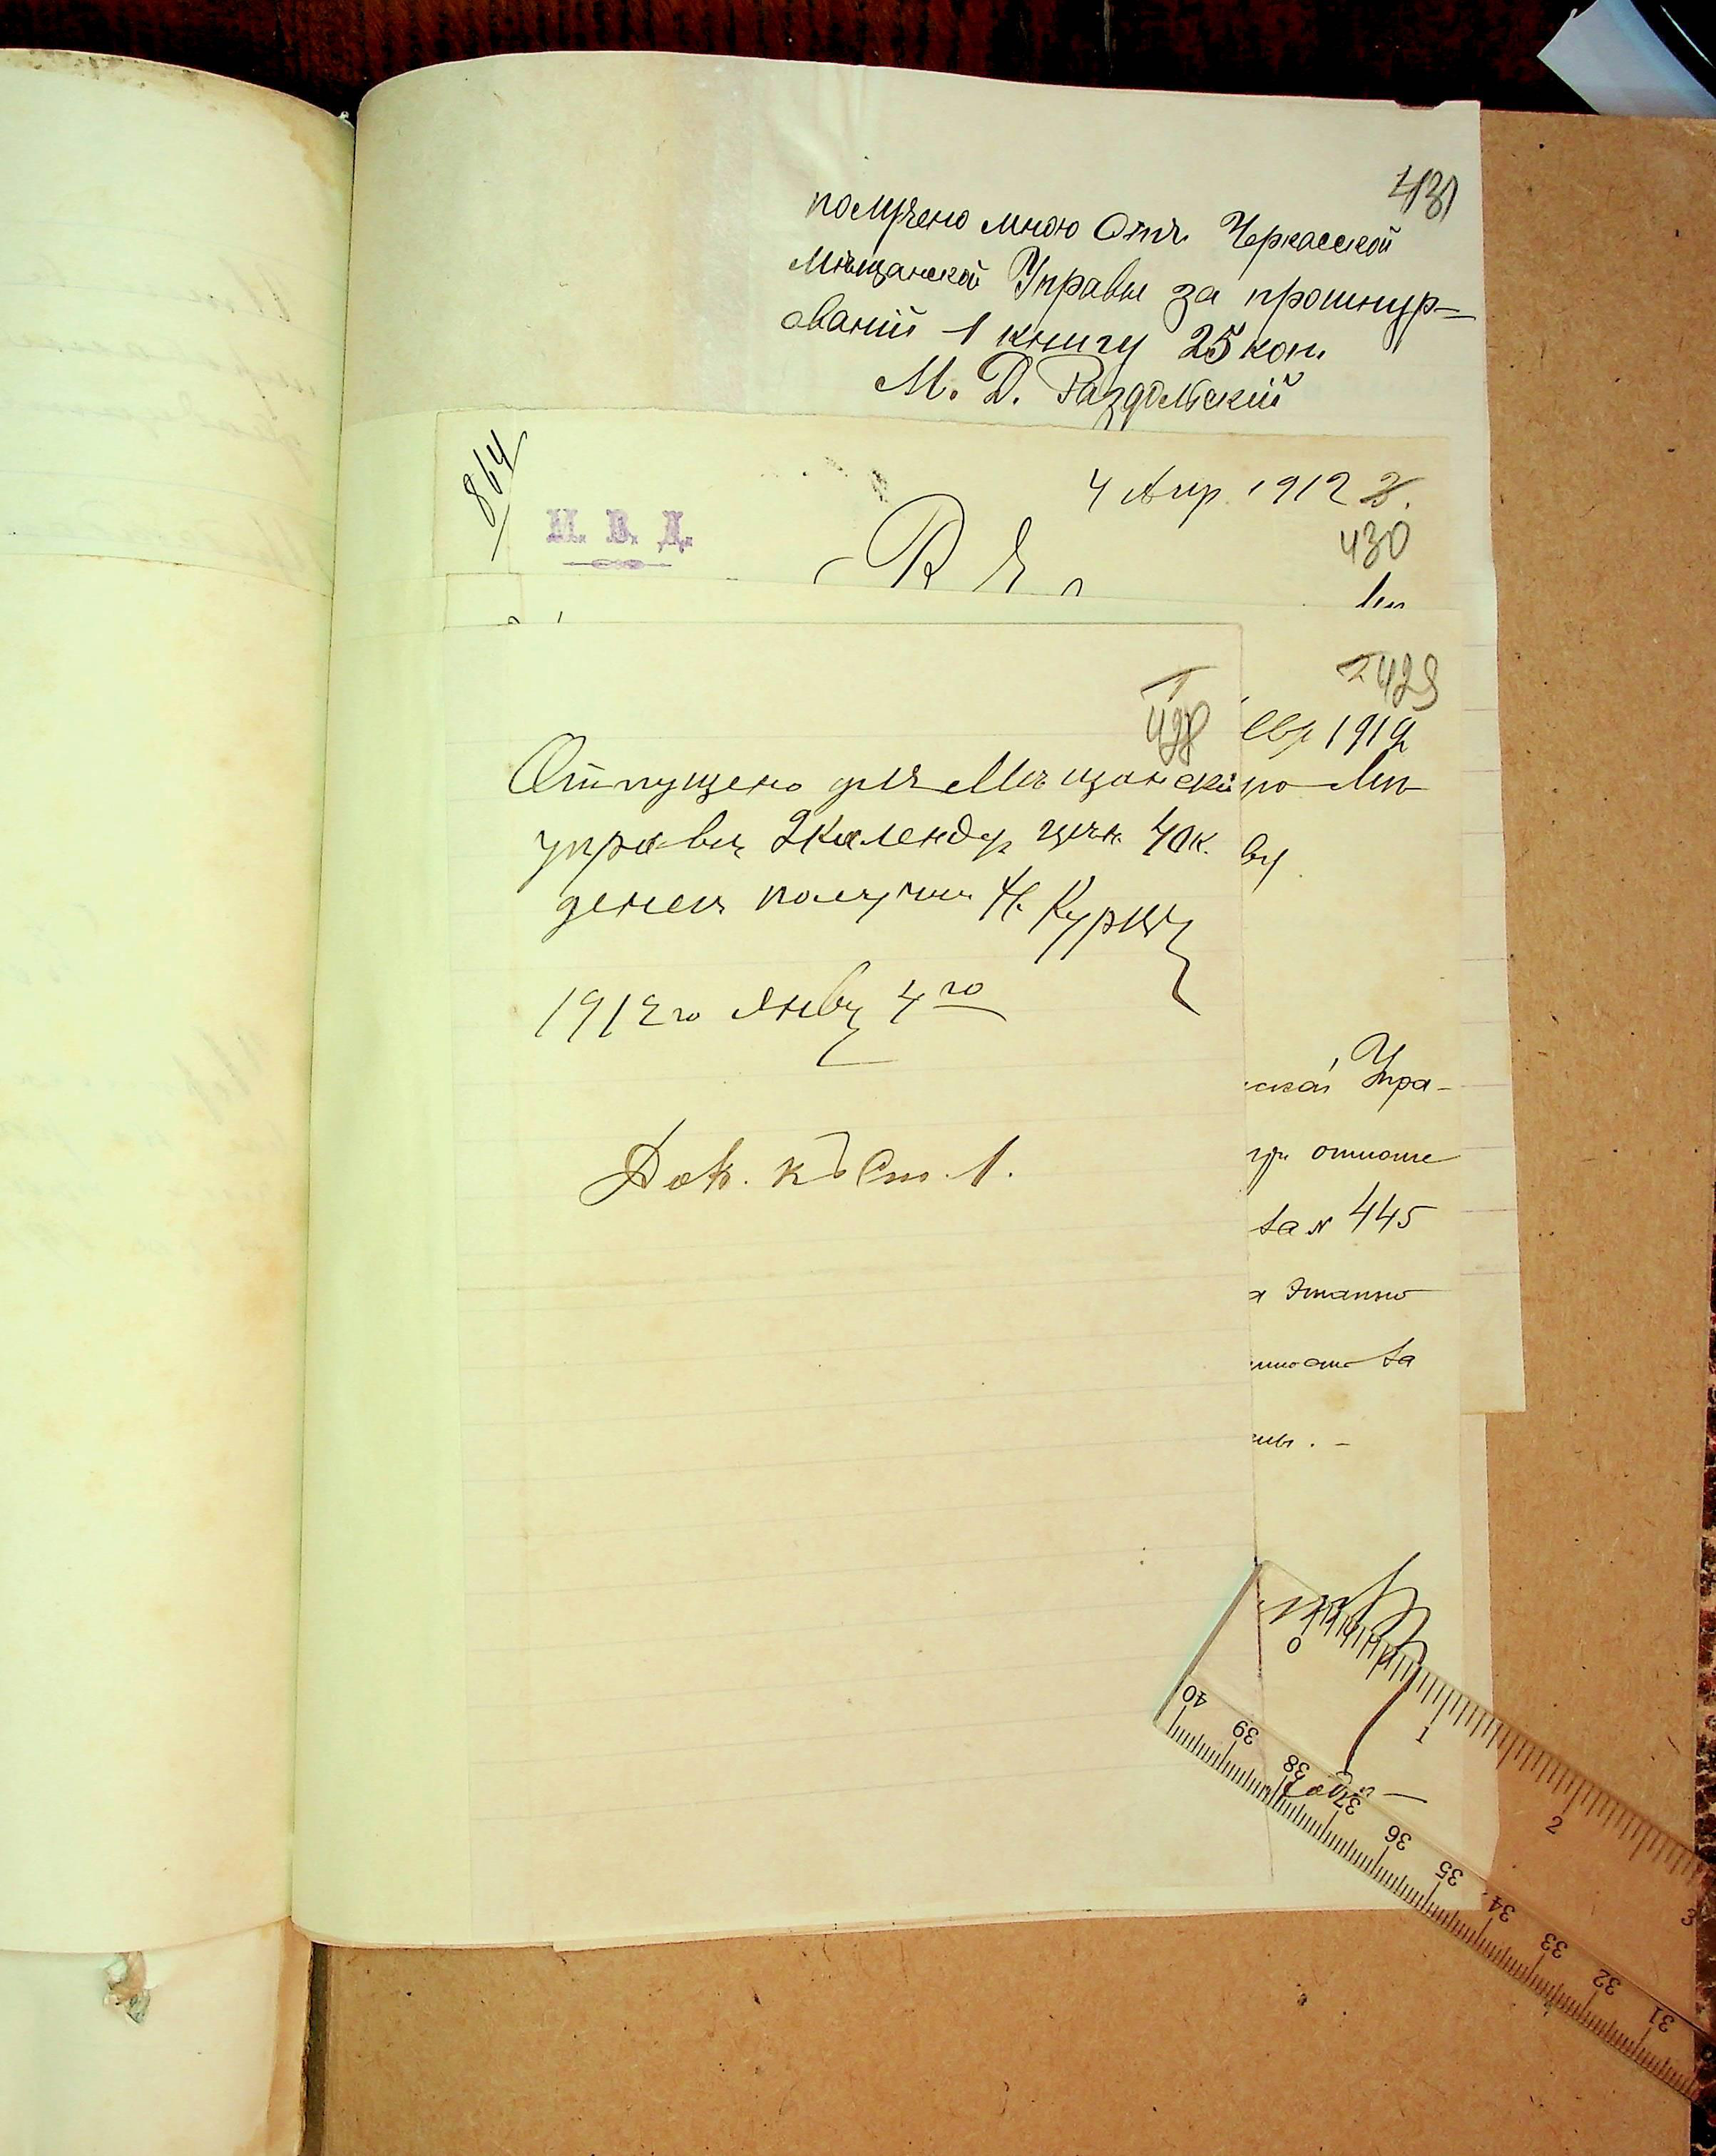 431
получено мною Отъ Черкасской
Мѣщанской Управы за прошнур-
ованій 1 книгу 25 коп.
М. Д. Раздольскій
864
4 Апр. 1912 г.
М. В. Д.
430
429
1912
428
Отпущено для Мѣщанской
управы 2 календ. цѣн. 40 к.
денги получил
1912 го Янв 4 го
Док. къ Ст. 1.
ская Упра-
отноше
за № 445
за
0 1 2 3
40 39 38 37 36 35 34 33 32 31